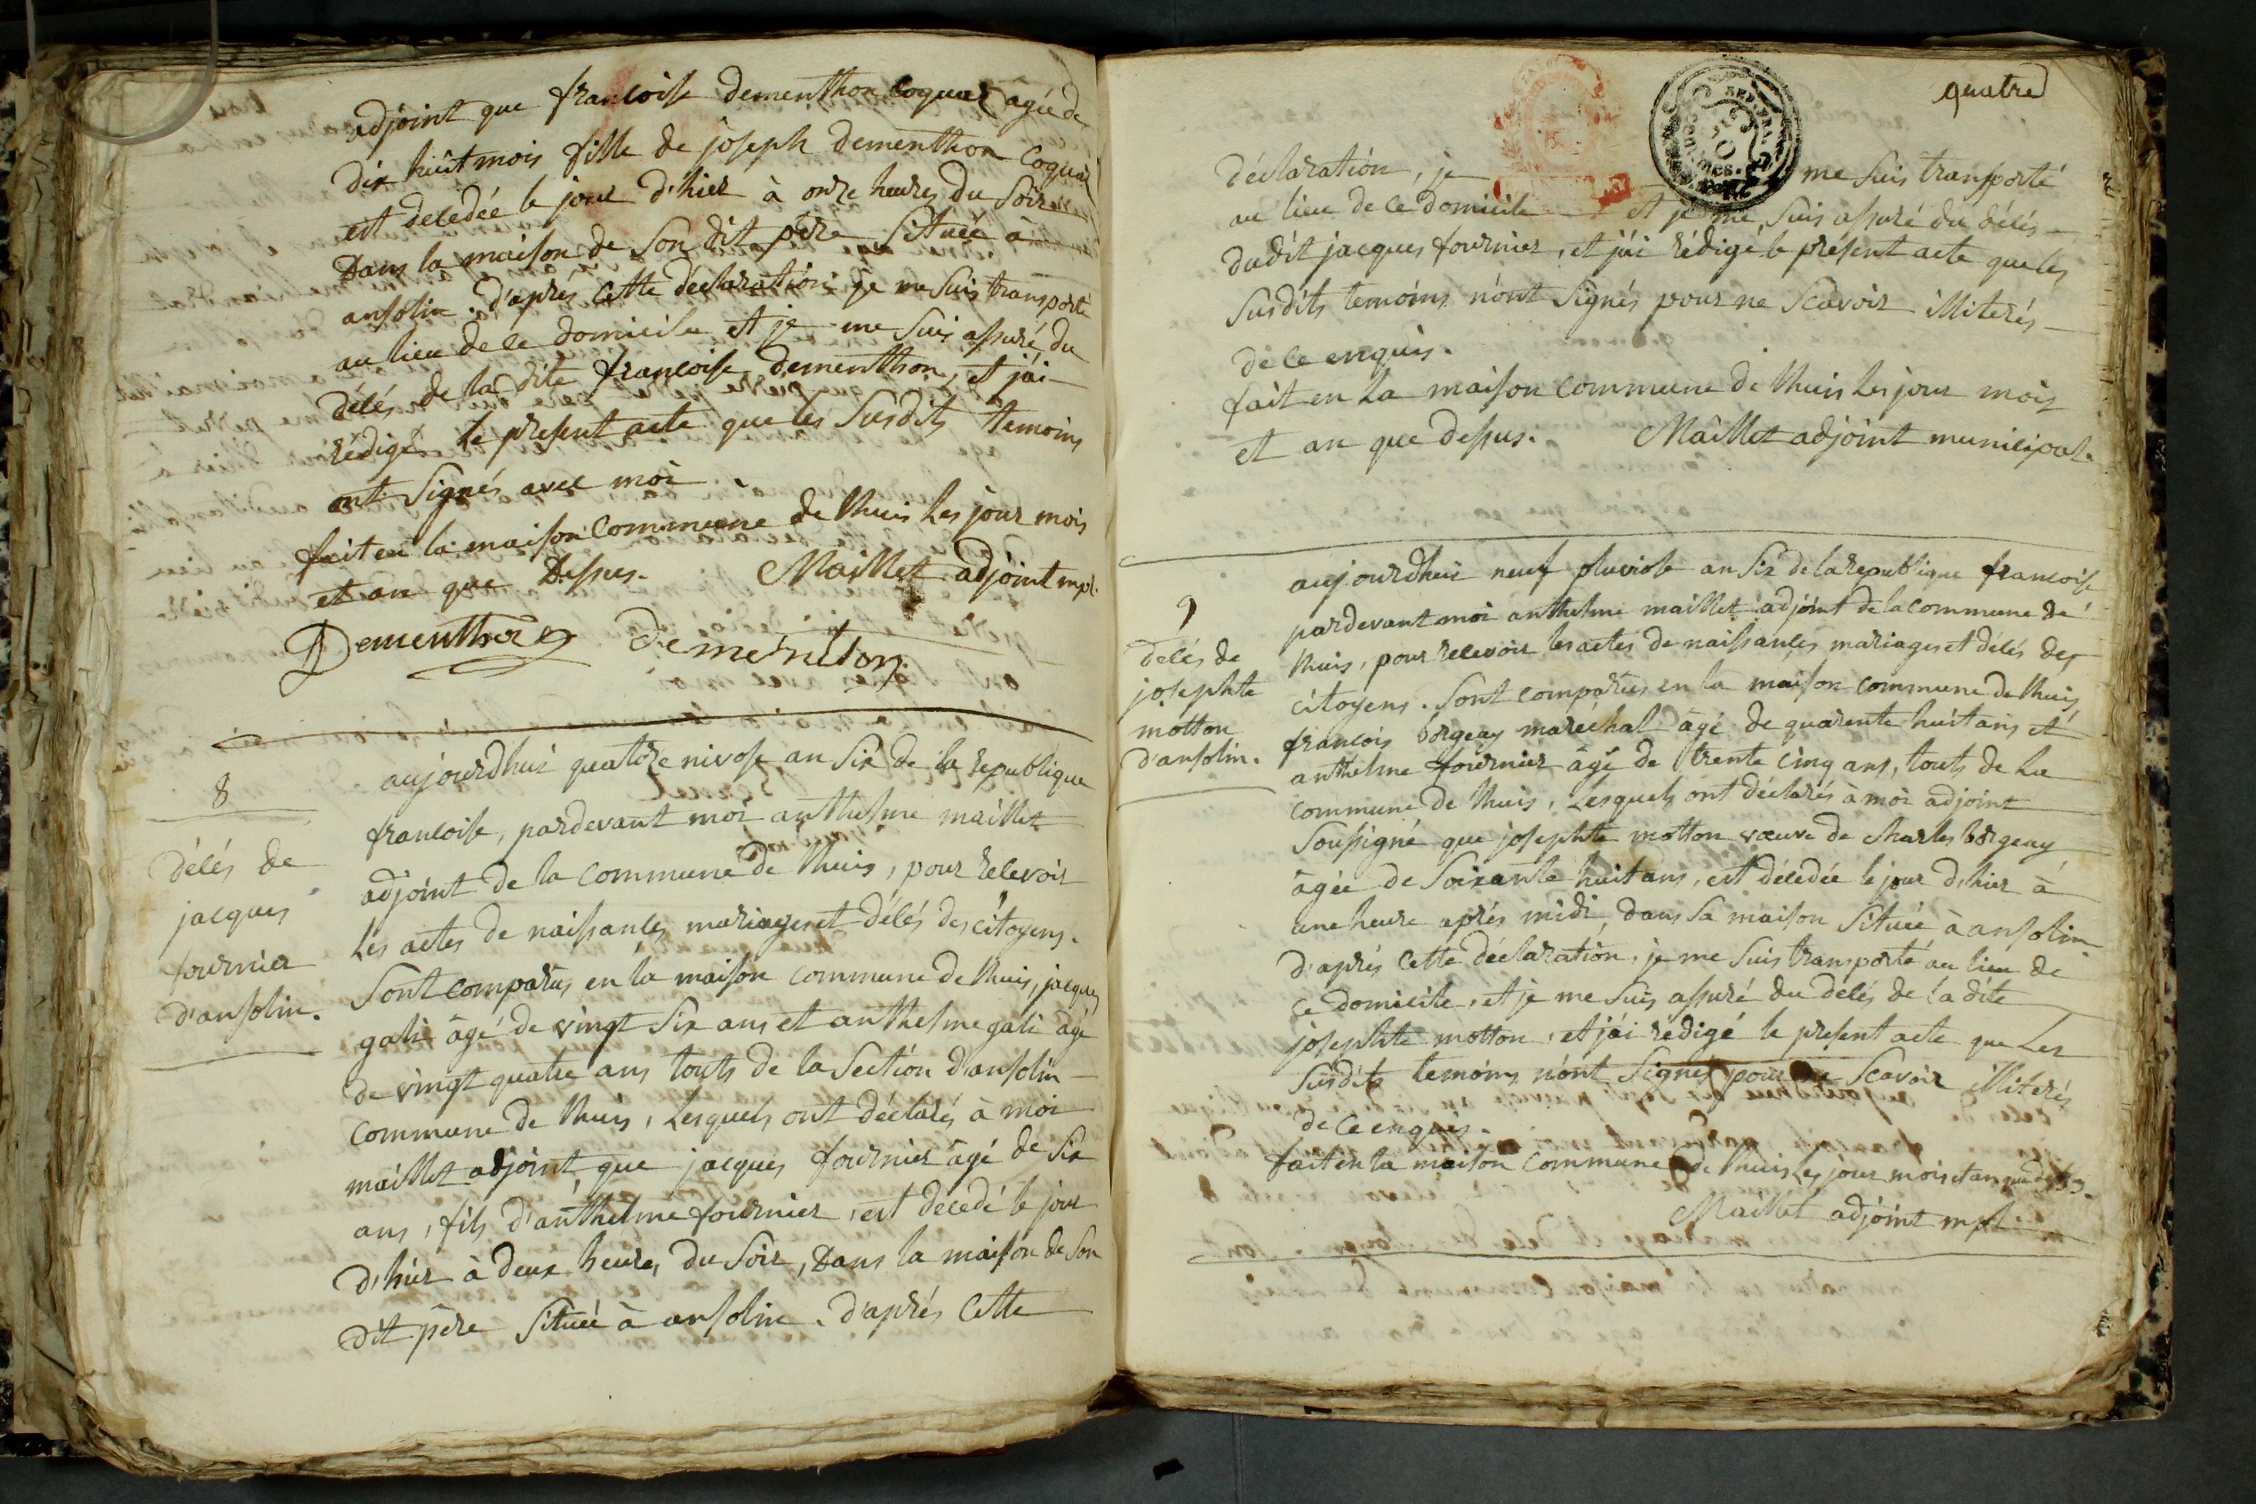 adjoint que francoise dementhon coquaz âgée de
dix huit mois fille de joseph dementhon coquaz
est decedée le jour d'hier à onze heures du soir
Dans la maison de son dit père située à
ansolin. d'après cette déclaration je me suis transporté
au lieu de ce domicile et je me suis assuré du
décés de la dite francoise dementhon, et j'ai
rédigé le present acte que les susdits temoins
ont signés avec moi
fait en la maison commune de lhuis les jour mois
et an que dessus. Maillet adjoint mpl.
Dementhon dementon
8
décés de
jacques
fournier
d'ansolin.
aujourdhui quatorze nivose an six de la republique
francoise, pardevant moi anthelme maillet
adjoint de la commune de lhuis, pour recevoir
les actes de naissances mariages et décés des citoyens.
sont comparus en la maison commune de lhuis, jacques
gali âgé de vingt six ans et anthelme gali âgé
de vingt quatre ans touts de la section d'ansolin
commune de lhuis, lesquels ont déclarés à moi
maillet adjoint, que jacques fournier âgé de six
ans, fils d'anthelme fournier, est decedé le jour
d'hier à deux heures du soir, dans la maison de son
dit père située à ansolin. d'après cette
quatre
déclaration, je me suis transporté
au lieu de ce domicile et je me suis assuré du décés
dudit jacques fournier, et j'ai rédigé le present acte que les
susdits temoins n'ont signés pour ne scavoir illiterés
de ce enquis.
fait en la maison commune de lhuis les jour mois
et an que dessus. Maillet adjoint municipal.
9
décés de
josephte
motton
d'ansolin.
aujourdhui neuf pluviose an six de la republique francoise
pardevant moi anthelme maillet adjoint de la commune de
lhuis, pour recevoir les actes de naissances mariages et décés des
citoyens. sont comparus en la maison commune de lhuis,
francois borgeay maréchal âgé de quarente huit ans et
anthelme fournier âgé de trente cinq ans, touts de la
commune de lhuis, lesquels ont déclarés à moi adjoint
soussigné que josephte motton vœuve de charles borgeay
âgée de soixante huit ans, est décedée le jour d'hier à
une heure aprés midi, dans sa maison située à ansolin
d'aprés cette déclaration, je me suis transporté au lieu de
ce domicile, et je me suis assuré du décés de la dite
josephte motton, et j'ai rédigé le present acte que les
susdits temoins n'ont signés pour ne scavoir illiterés
de ce enquis.
fait en la maison commune de lhuis les jour mois et an que dessus.
Maillet adjoint mpl